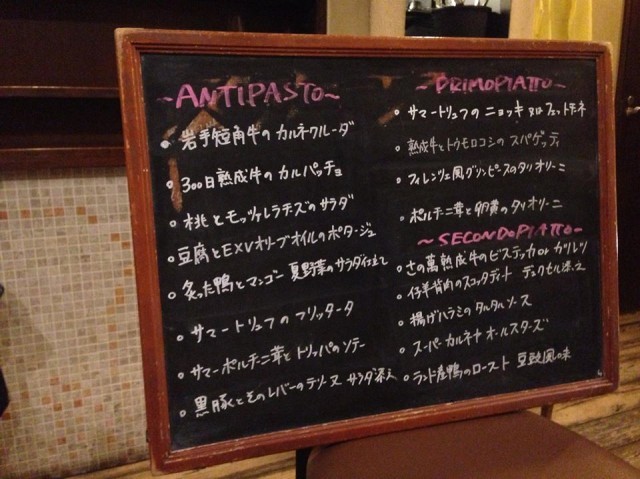 ~ANTIPASTO~
• 岩手短角牛のカルネクルーダ
• 300日熟成牛のカルパッチョ
• 桃とモッツァレラチーズのサラダ
• 豆腐とEXVオリーブオイルのポタージュ
• 炙った鴨とマンゴー 夏野菜のサラダ仕立て
• サマートリュフのフリッタータ
• サマーポルチーニ茸とトリッパのソテー
• 黒豚とそのレバーのテリーヌ サラダ添え
~PRIMOPIATTO~
• サマートリュフのニョッキ or フェットチーネ
• 熟成牛とトウモロコシのスパゲッティ
• フィレンツェ風グリンピースのタリオリーニ
• ポルチーニ茸と卵黄のタリオリーニ
~SECONDOPIATTO~
• さの萬熟成牛のビステッカ or カツレツ
• 仔羊背肉のスコッタディート デュクセル添え
• 揚げハラミのタルタルソース
• スーパーカルネヤオールスターズ
• ランド産鴨のロースト 豆豉風味